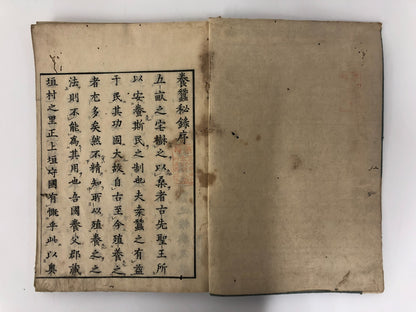 養蠶秘錄序
五畝之宅樹之以桑者古先聖王所
以安養斯民之制也夫桑蠶之有益
于民其功固大故自古至今殖養之
者尤多矣然不精知所以殖養之之
法則不能為其用也吾國養父郡藏
垣村之里正上垣守國有慨乎此以奧